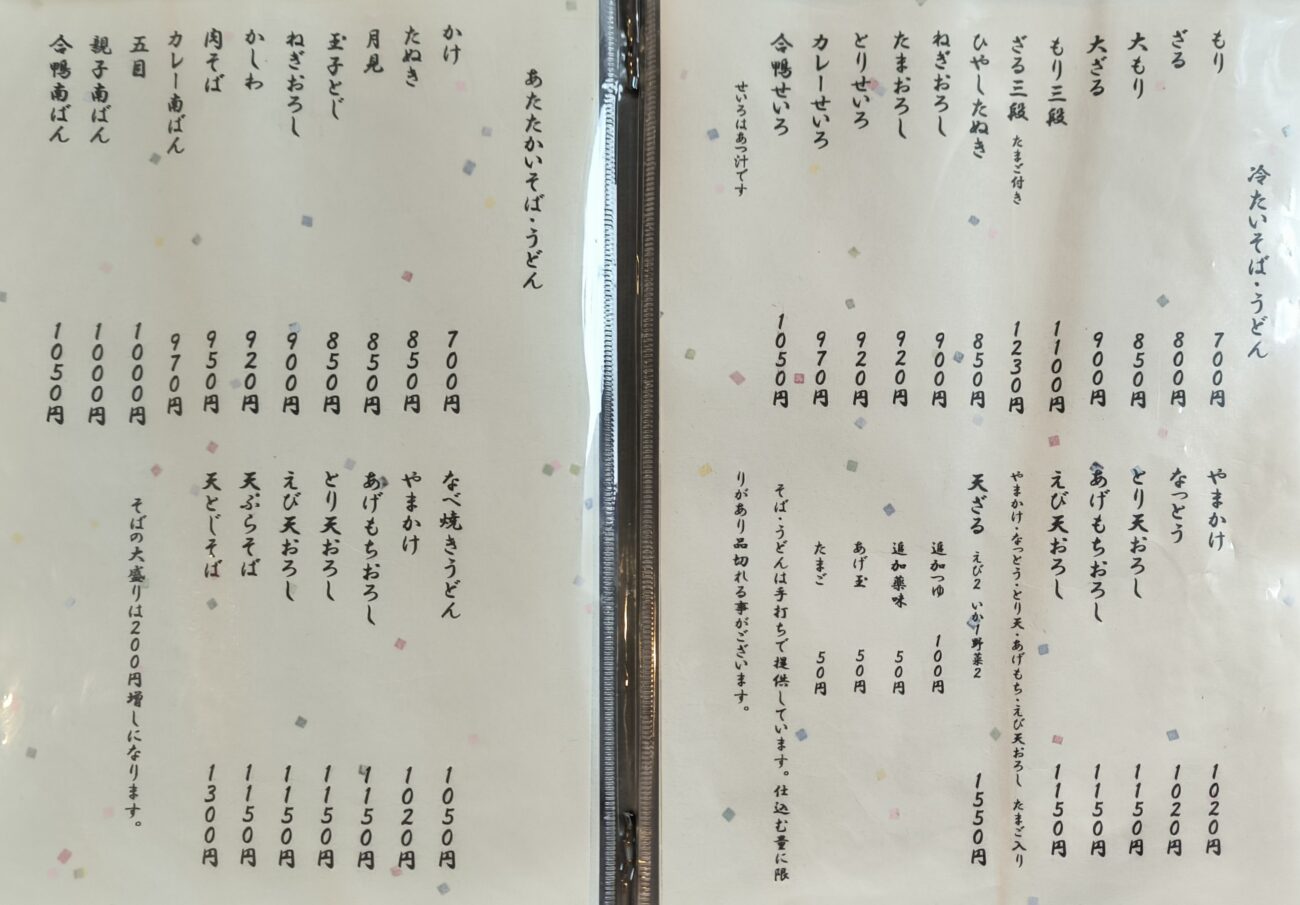 冷たいそば・うどん
もり 700円
ざる 800円
大もり 850円
大ざる 900円
もり三段 1100円
ざる三段 たまご付き 1230円
ひやしたぬき 850円
ねぎおろし 900円
たまおろし 920円
とりせいろ 920円
カレーせいろ 970円
合鴨せいろ 1050円
せいろはあつ汁です
やまかけ 1020円
なっとう 1020円
とり天おろし 1150円
あげもちおろし 1150円
えび天おろし 1150円
やまかけ・なっとう・とり天・あげもち・えび天おろし たまご入り
天ざる えび2 いか1野菜2 1550円
追加つゆ 100円
追加薬味 50円
あげ玉 50円
たまご 50円
そば・うどんは手打ちで提供しています。仕込む量に限
りがあり品切れる事がございます。
あたたかいそば・うどん
かけ 700円
たぬき 850円
月見 850円
玉子とじ 850円
ねぎおろし 900円
かしわ 920円
肉そば 950円
カレー南ばん 970円
五目 1000円
親子南ばん 1000円
合鴨南ばん 1050円
なべ焼きうどん 1050円
やまかけ 1020円
あげもちおろし 1150円
とり天おろし 1150円
えび天おろし 1150円
天ぷらそば 1150円
天とじそば 1300円
そばの大盛りは200円増しになります。